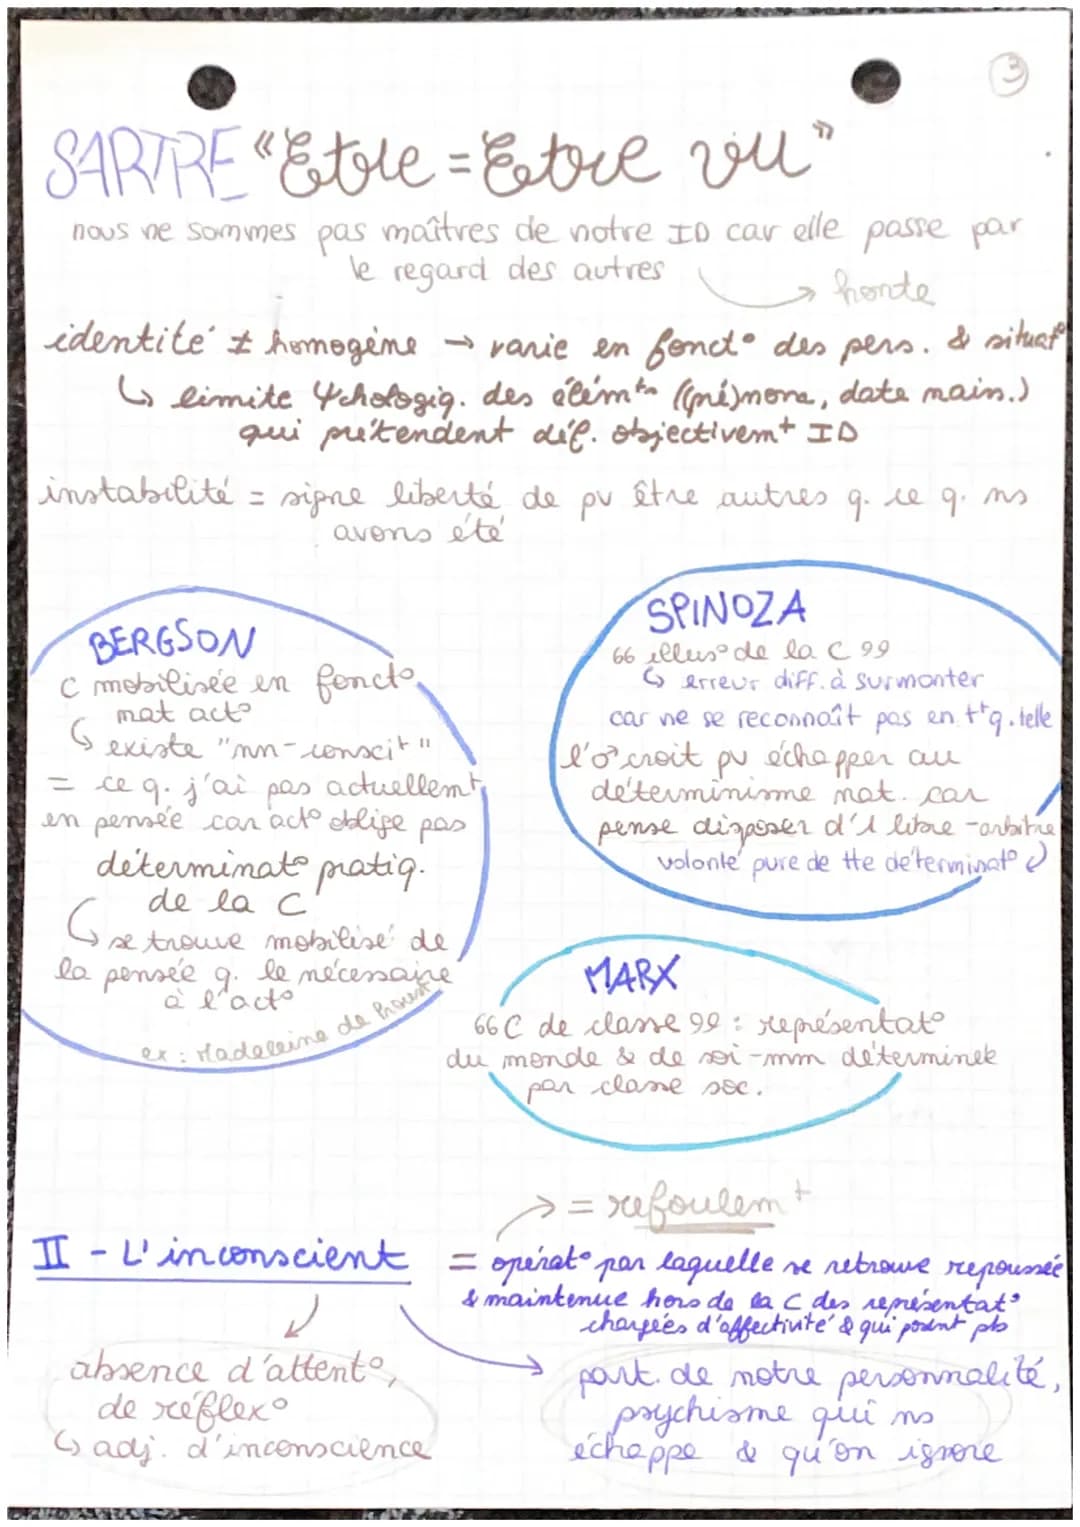 3
SARTRE "Etre = Etre vu"
nous ne sommes pas maîtres de notre ID car elle passe par
le regard des autres
→ honte
identité ≠ homogène → varie en fonct° des pers. & situat°
↳ limite Ψcholog​iq. des élémts ((pré)nom, date naiss.)
qui prétendent déf. objectivemt ID
instabilité = signe liberté de pv être autres q. ce q. ns
avons été
BERGSON
C mobilisée en fonct°
nat act°
↳ existe "nn-conscit"
= ce q. j'ai pas actuellemt
en pensée car act° oblige pas
déterminat° pratiq.
de la C
↳ se trouve mobilisé de
la pensée q. le nécessaire
à l'act°
ex : Madeleine de Proust
SPINOZA
66 illus° de la C 99
↳ erreur diff. à surmonter
car ne se reconnaît pas en ttq. telle
l'♂ croit pv échapper au
déterminisme nat. car
pense disposer d'1 libre-arbitre
volonté pure de tte déterminat°
MARX
66 C de classe 99 : représentat°
du monde & de soi-mm déterminée
par classe soc.
→ = refoulemt
II - L'inconscient
= opérat° par laquelle se retrouve repoussée
& maintenue hors de la C des représentat°
chargées d'affectivité & qui posent pb
absence d'attent°,
de réflex°
↳ adj. d'inconscience
part. de notre personnalité,
psychisme qui ns
échappe & qu'on ignore